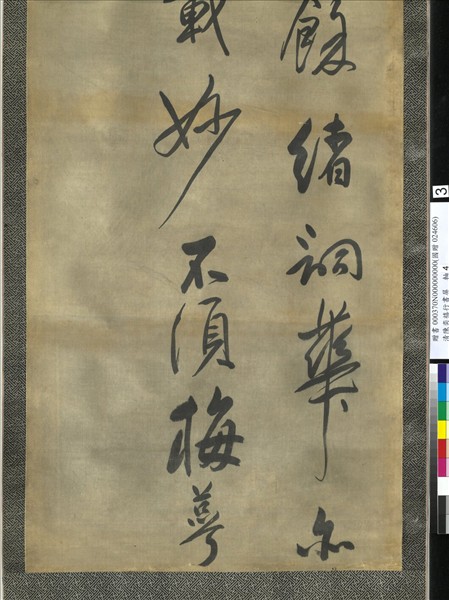 餘緒詞華亦
妙不須梅萼
3
贈書 000370N000000000(國贈 024606)
清陳奕禧行書屏 軸 4